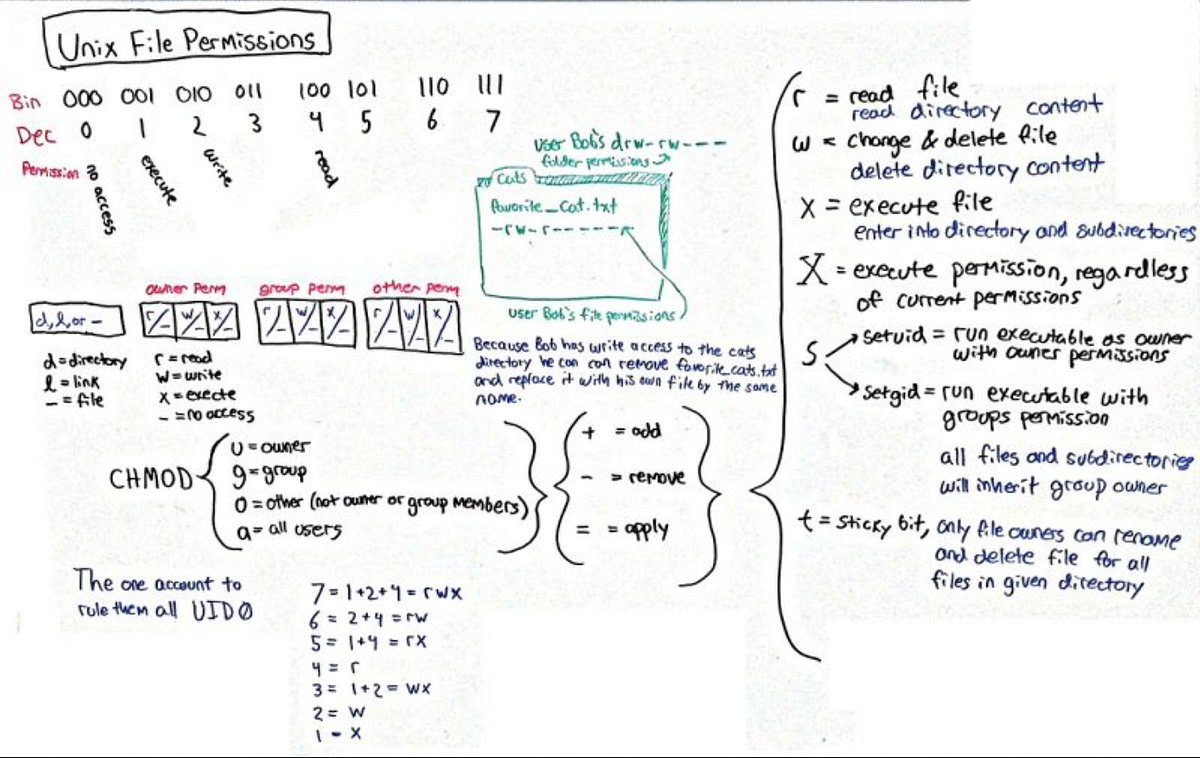 Unix File Permissions
Bin 000 001 010 011 100 101 110 111
Dec 0 1 2 3 4 5 6 7
Permission no access execute write read
user Bob's drw-rw---
folder permissions
Cats
favorite_cat.txt
-rw-r-----
user Bob's file permissions
Because Bob has write access to the cats
directory he can can remove favorite_cats.txt
and replace it with his own file by the same
name.
owner perm group perm other perm
d,l,or - r/- w/- x/- r/- w/- x/- r/- w/- x/-
d=directory
l=link
-=file
r=read
w=write
x=execte
-=no access
CHMOD
u=owner
g=group
o=other (not owner or group members)
a=all users
+ = add
- = remove
= = apply
r = read file
read directory content
w = change & delete file
delete directory content
x = execute file
enter into directory and subdirectories
X = execute permission, regardless
of current permissions
s
setuid = run executable as owner
with owner permissions
setgid = run executable with
groups permission
all files and subdirectories
will inherit group owner
t = sticky bit, only file owners can rename
and delete file for all
files in given directory
The one account to
rule them all UID0
7 = 1+2+4 = rwx
6 = 2+4 = rw
5 = 1+4 = rx
4 = r
3 = 1+2 = wx
2 = w
1 - x